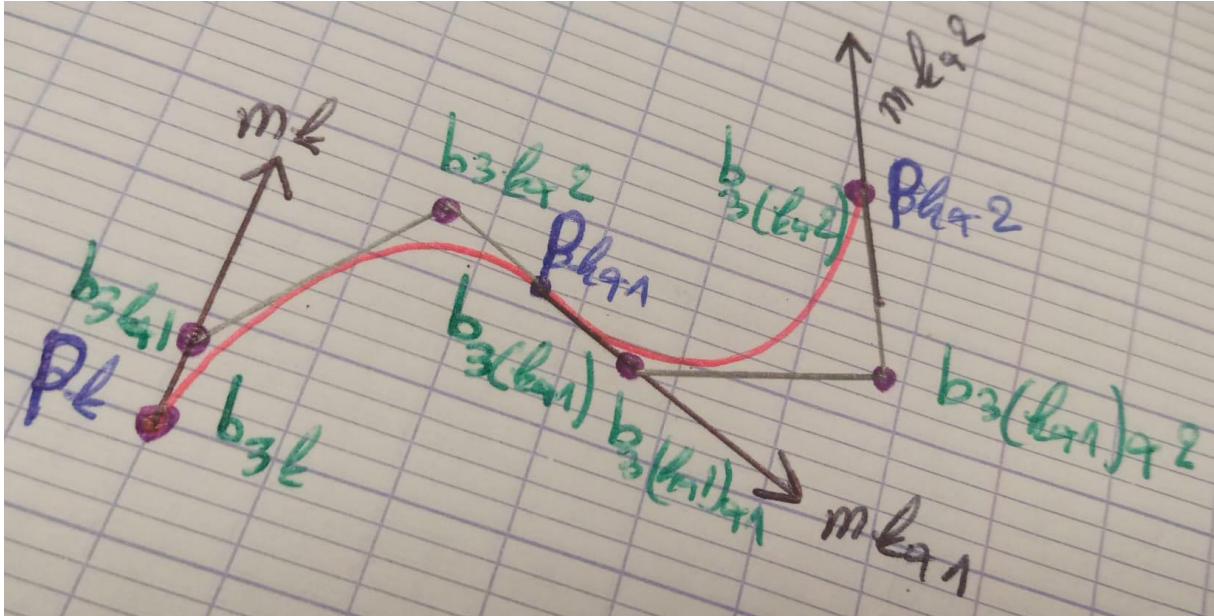 mk+2
mk
b3k+2
b3(k+2)
Pk+2
Pk+1
b3k+1
b3(k+1)
Pk
b3k
b3(k+1)+1
b3(k+1)+2
mk+1